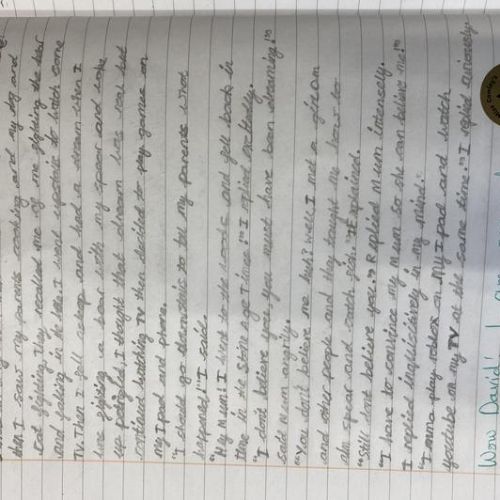 then I saw my parents cooking and my dog and
cat fighting they recalled me of me fighting the bear
and falling in the hole. I went upstairs to watch some
TV. Then I fell asleep and had a dream when I
was fighting a bear with my spear and woke
up petrified. I thought that dream was real but
continued watching TV then decided to play games on
my Ipad and phone.
"I should go themselves to tell my parents what
happened" I said.
"Hey Mum! I went to the woods and fell back in
time in the stone age times!" I replied excitedly.
"I don't believe you you must have been dreaming!"
said Mum angrily.
"You don't believe me huh? Well I met a
and other people and they taught me how to
spear and catch fish." I explained.
"Still don't believe you." Replied Mum intensely.
"I have to convince my Mum so she can believe me!"
I replied inquisitively in my mind.
"I umma play roblox on my Ipad and watch
youtube on my TV at the same time." I replied curiously.
Wow David!